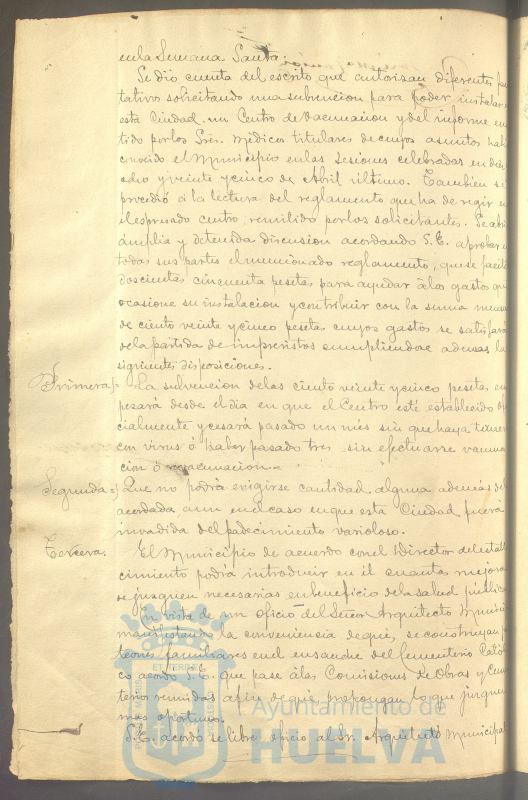 en la Semana Santa.
Se dió cuenta del escrito que autorizan diferentes fa
tativos solicitando una subvencion para poder instalar
esta Ciudad un Centro de vacunacion y del informe em
tido por los Sres. Medicos titulares de cuyos asuntos hab
cnocido el Municipio en las sesiones celebradas en di
ocho y veinte y cinco de Abril último. Tambien se
procedió á la lectura del reglamento que ha de regir e
el espresado centro, remitido por los solicitantes. Se abrió
ámplia y detenida discusion acordando S.E. aprobar e
todas sus partes el mencionado reglamento; que se facili
doscientas cincuenta pesetas para ayudar á los gastos qu
ocasione su instalacion y contribuir con la suma mensu
de ciento veinte y cinco pesetas cuyos gastos se satisfará
de la partida de imprevistos cumpliendose ademas la
siguientes disposiciones.
Primera. La subvencion de las ciento veinte y cinco pesetas em
pesará desde el dia en que el Centro esté establecido ofi
cialmente y cesará pasado un més sin que haya terner
con virus ó haber pasado tres sin efectuarse vacuna
cion ó revacunacion.
Segunda. Que no podrá exigirse cantidad alguna ademas de
acordada aun en el caso en que esta Ciudad fuera
invadida del padecimiento varioloso.
Tercera. El Municipio de acuerdo con el Director del establ
cimiento podrá introducir en él cuantas mejora
se juzguen necesarias en beneficio de la salud pública
En vista de un oficio del Señor Arquitecto Munici
manifestando la conveniencia de que se construyan
teones familiares en el ensanche del Cementerio Catól
co acordó S.E. que pase á las Comisiones de Obras y Cem
terio reunidas afin de que propongan lo que juzguen
mas oportuno.
S.E. acordó se libre oficio al Sr. Arquitecto Municipal
Ayuntamiento de
HUELVA